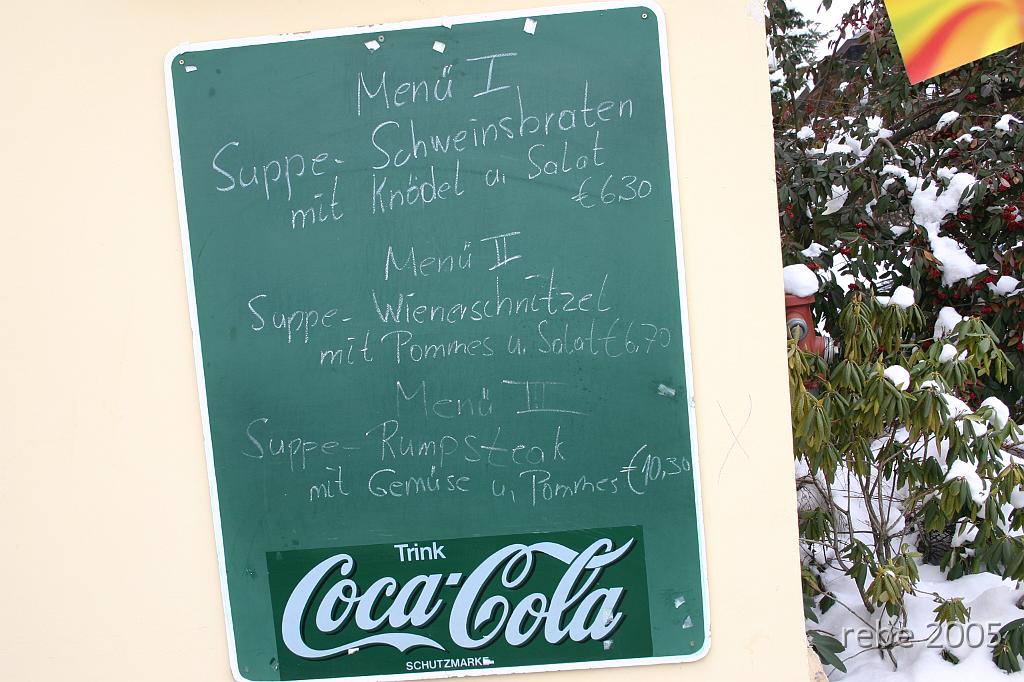 Menü I
Suppe- Schweinsbraten
mit Knödel u. Salat
€6,30
Menü II
Suppe- Wienerschnitzel
mit Pommes u. Salat €6,70
Menü III
Suppe- Rumpsteak
mit Gemüse u. Pommes €10,30
Trink
Coca-Cola
SCHUTZMARKE
rebe 2005